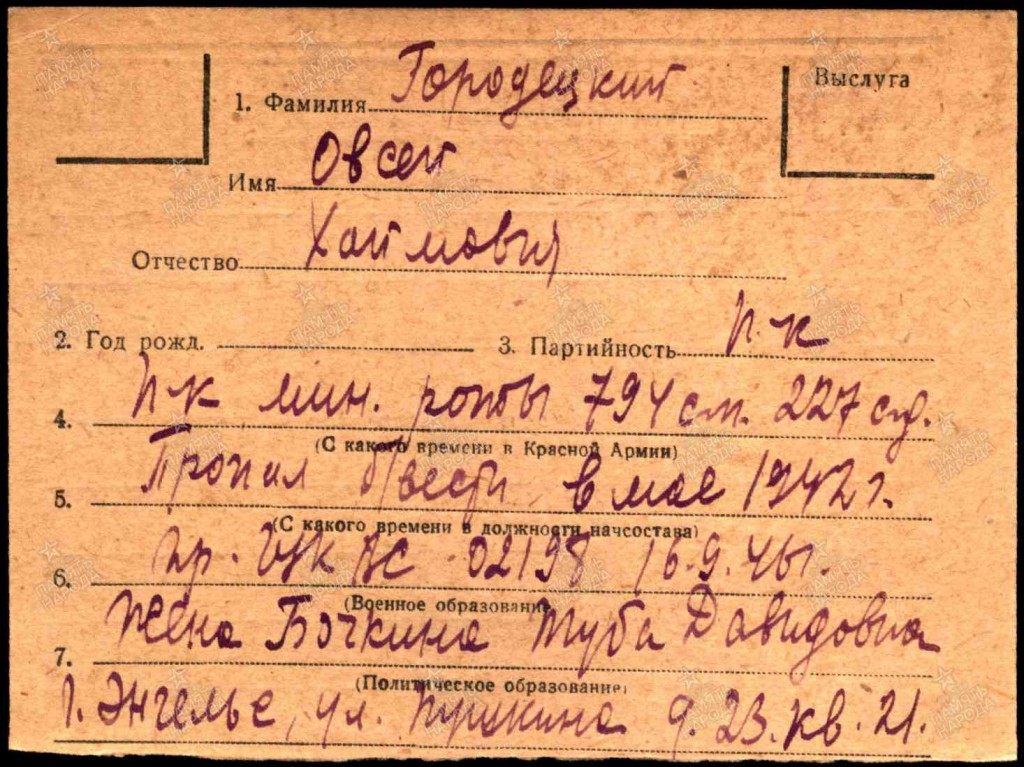 Выслуга
1. Фамилия Городецкий
Имя Овсей
Отчество Хаймович
2. Год рожд. 3. Партийность п.к
4. п/к мин. роты 794 сп. 227 сд.
(С какого времени в Красной Армии)
5. Пропал б/вести в мае 1942 г.
(С какого времени в должности начсостава)
6. пр. ГУК ВС 02198 16.9.46г.
(Военное образование)
7. Жена Бочкина Туба Давидовна
(Политическое образование)
г. Энгельс, ул. Пушкина д. 23. кв. 21.